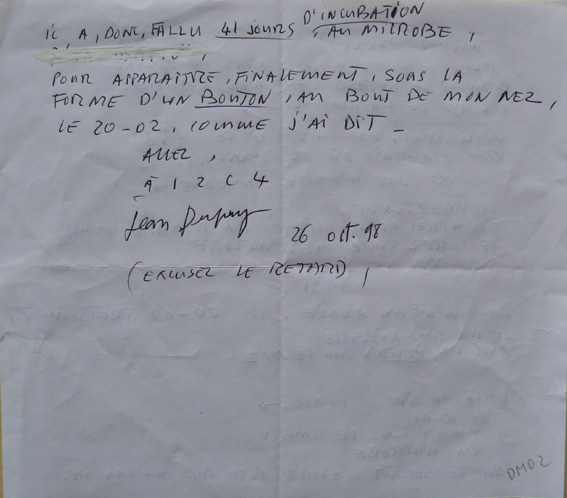 IL A, DONC, FALLU 41 JOURS D'INCUBATION, AU MICROBE,
POUR APPARAITRE, FINALEMENT, SOUS LA
FORME D'UN BOUTON, AU BOUT DE MON NEZ,
LE 20-02, COMME J'AI DIT_
ALLEZ,
À 1 2 C 4
Jean Dupuy
26 oct. 98
(EXCUSEZ LE RETARD)
DMD2